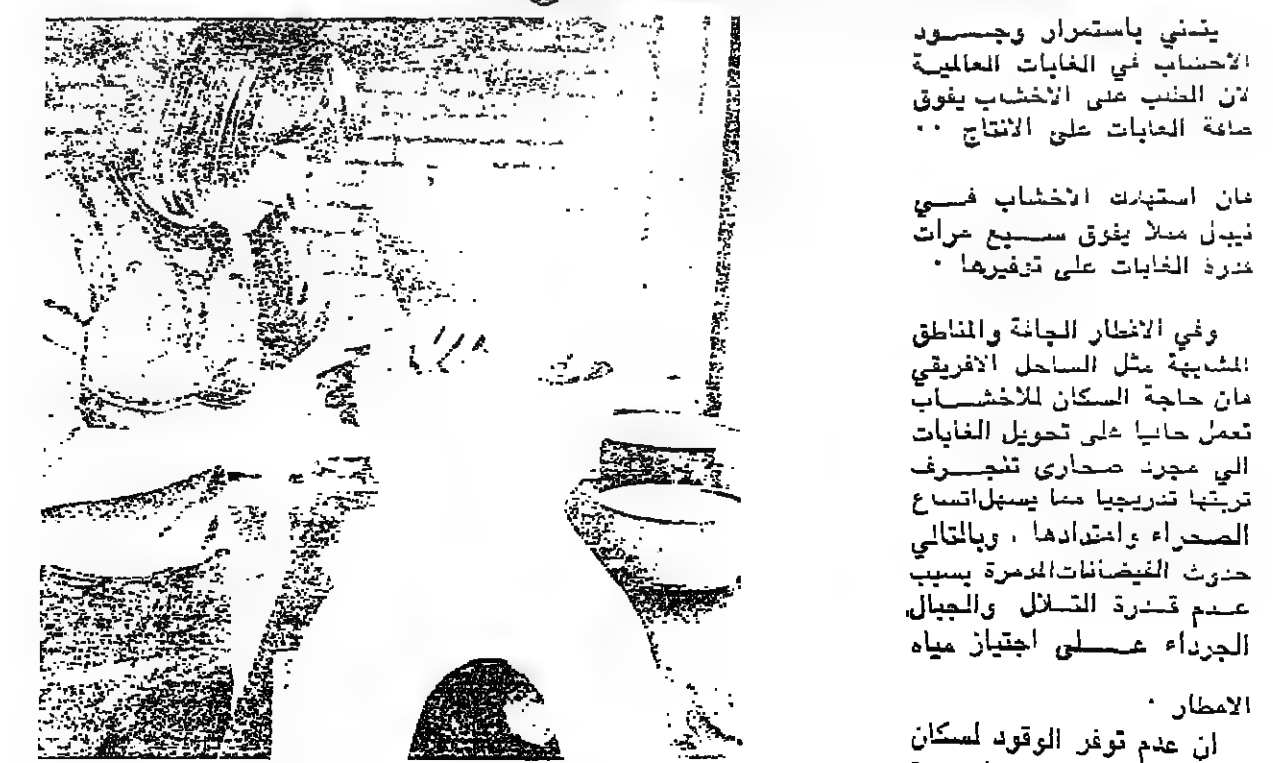 يتمني باستمرار وجـــود
الاخشاب في الغابات العالميـة
لان الطلب على الاخشاب يفوق
طاقة الغابات على الانتاج ٠٠
فان استهلاك الاخشاب فـــي
نيبال مثلا يفوق ســـبع مرات
قدرة الغابات على توفيرها ٠
وفي الاقطار الجافة والمناطق
المشابهة مثل الساحل الافريقي
فان حاجة السكان للاخشـــاب
تعمل حاليا على تحويل الغابات
الي مجرد صحاري تنجـــرف
تربتها تدريجيا مما يسهل اتساع
الصحراء وامتدادها ، وبالتالي
حدوث الفيضانات المدمرة بسبب
عـــدم قـــدرة التـــلال والجبال
الجرداء عـــــلى اجتياز مياه
الامطار ٠
ان عدم توفر الوقود لسكان